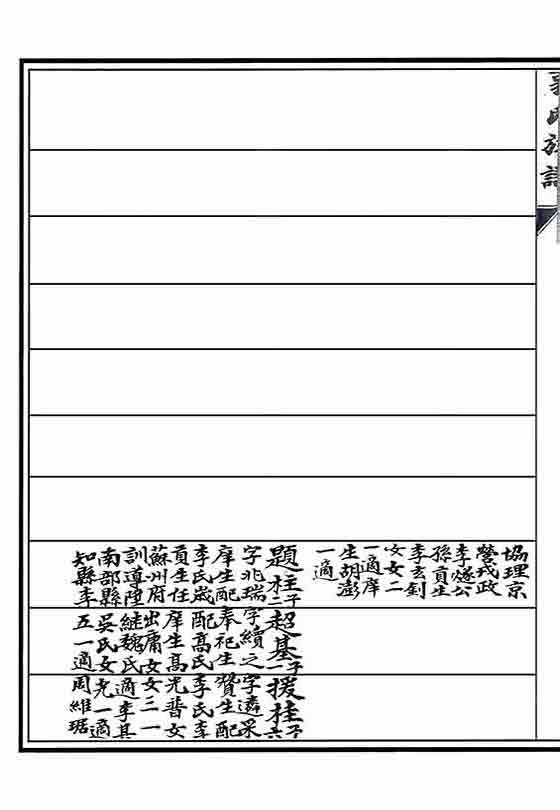 氏族譜
協理京
營戎政
李燧公
孫貢生
李玄釗
女女二
一適庠
生胡澎
一適
題柱二子
字兆瑞
庠生配
李氏歲
貢生任
蘇州府
訓導陞
南部縣
知縣李
超基一子
字續之
奉祀生
配高氏
庠生高
出庸女
繼魏氏
吳氏女
五一適
援桂六子
字遴采
贊生配
李氏李
光普女
女三一
適李其
尤一適
周維琚